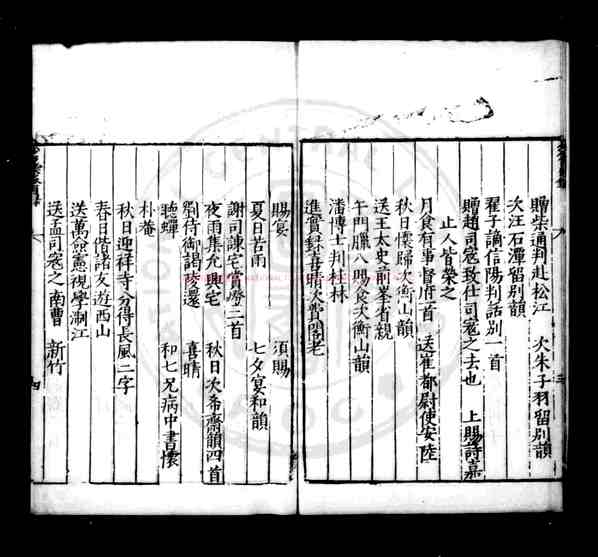 贈柴通判赴松江　次朱子羽留別韻
次汪石潭留別韻
翟子謫信陽判話別一首
贈趙司寇致仕司寇之去也　上賜詩嘉
止人皆榮之
月食有事督府一首　送崔都尉使安陸
秋日懷歸次衡山韻
送王太史前峯省親
午門臘八賜食次衡山韻
潘博士判桂林
進實錄喜晴次費閣老
賜宴　須賜
夏日苦雨　七夕宴和韻
謝司諫宅賞櫻二首
夜雨集允興宅　秋日次希齋韻四首
劉侍御謁陵還　喜晴
聽蟬　和七兄病中書懷
朴菴
秋日迎祥寺分得長風二字
春日偕諸友遊西山
送萬憲視學浙江
送孟司寇之南曹　新竹